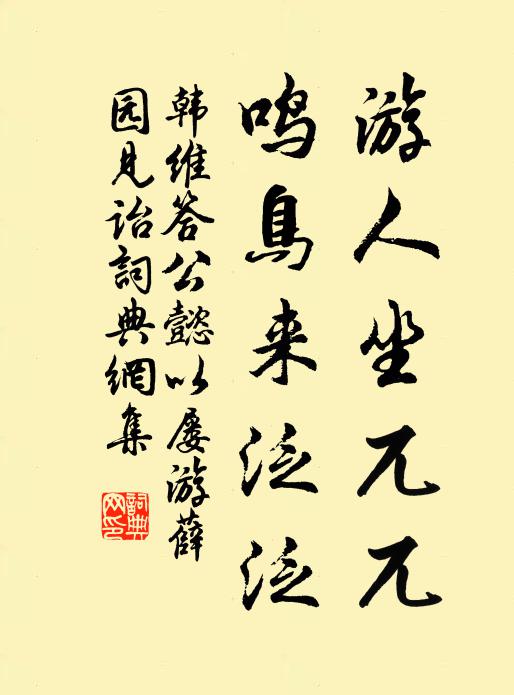 游人坐兀兀
鸣鳥来泛泛
韩维答公懿以屡游薛
园见诒詞典網集
詞典网印